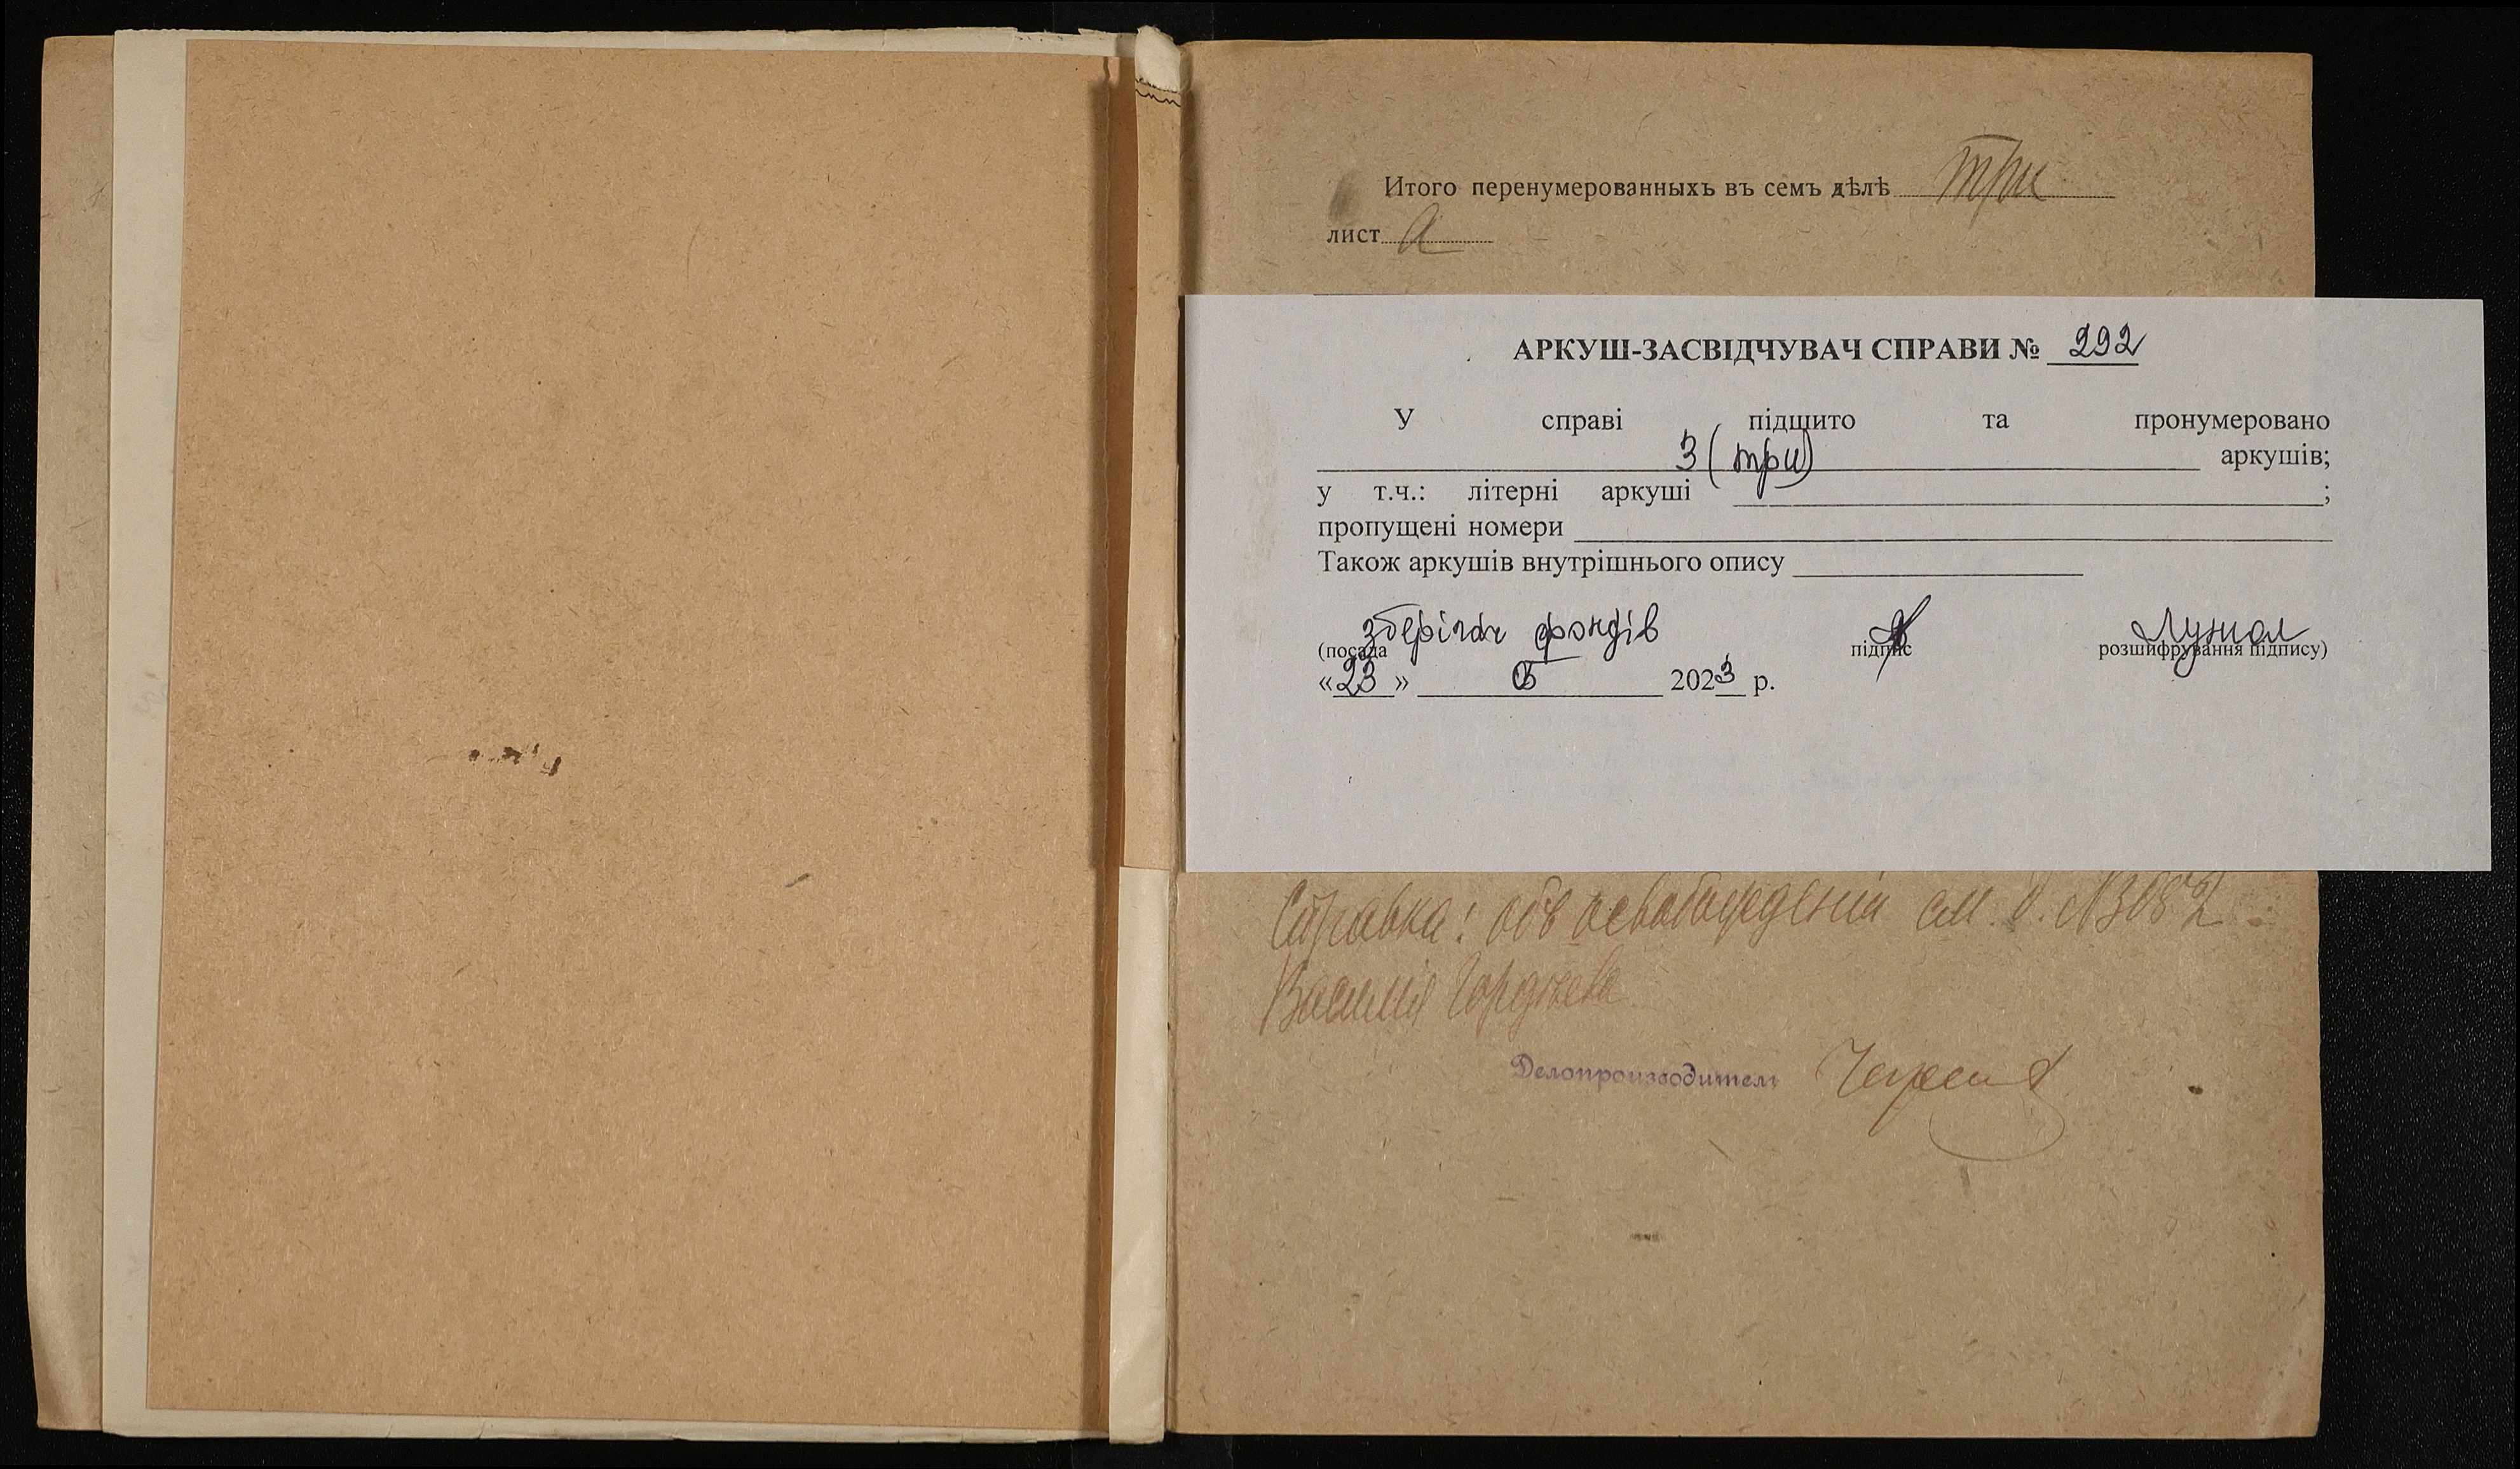 Итого перенумерованныхъ въ семъ дѣлѣ три
лист а
АРКУШ-ЗАСВІДЧУВАЧ СПРАВИ № 292
У справі підшито та пронумеровано
3 (три) аркушів;
у т.ч.: літерні аркуші ;
пропущені номери
Також аркушів внутрішнього опису
зберігач фондів
(посада підпис розшифрування підпису)
«23» 05 2023 р.
Справка: объ освобожденіи см. д. №3082
Василія Гордѣева
Делопроизводитель